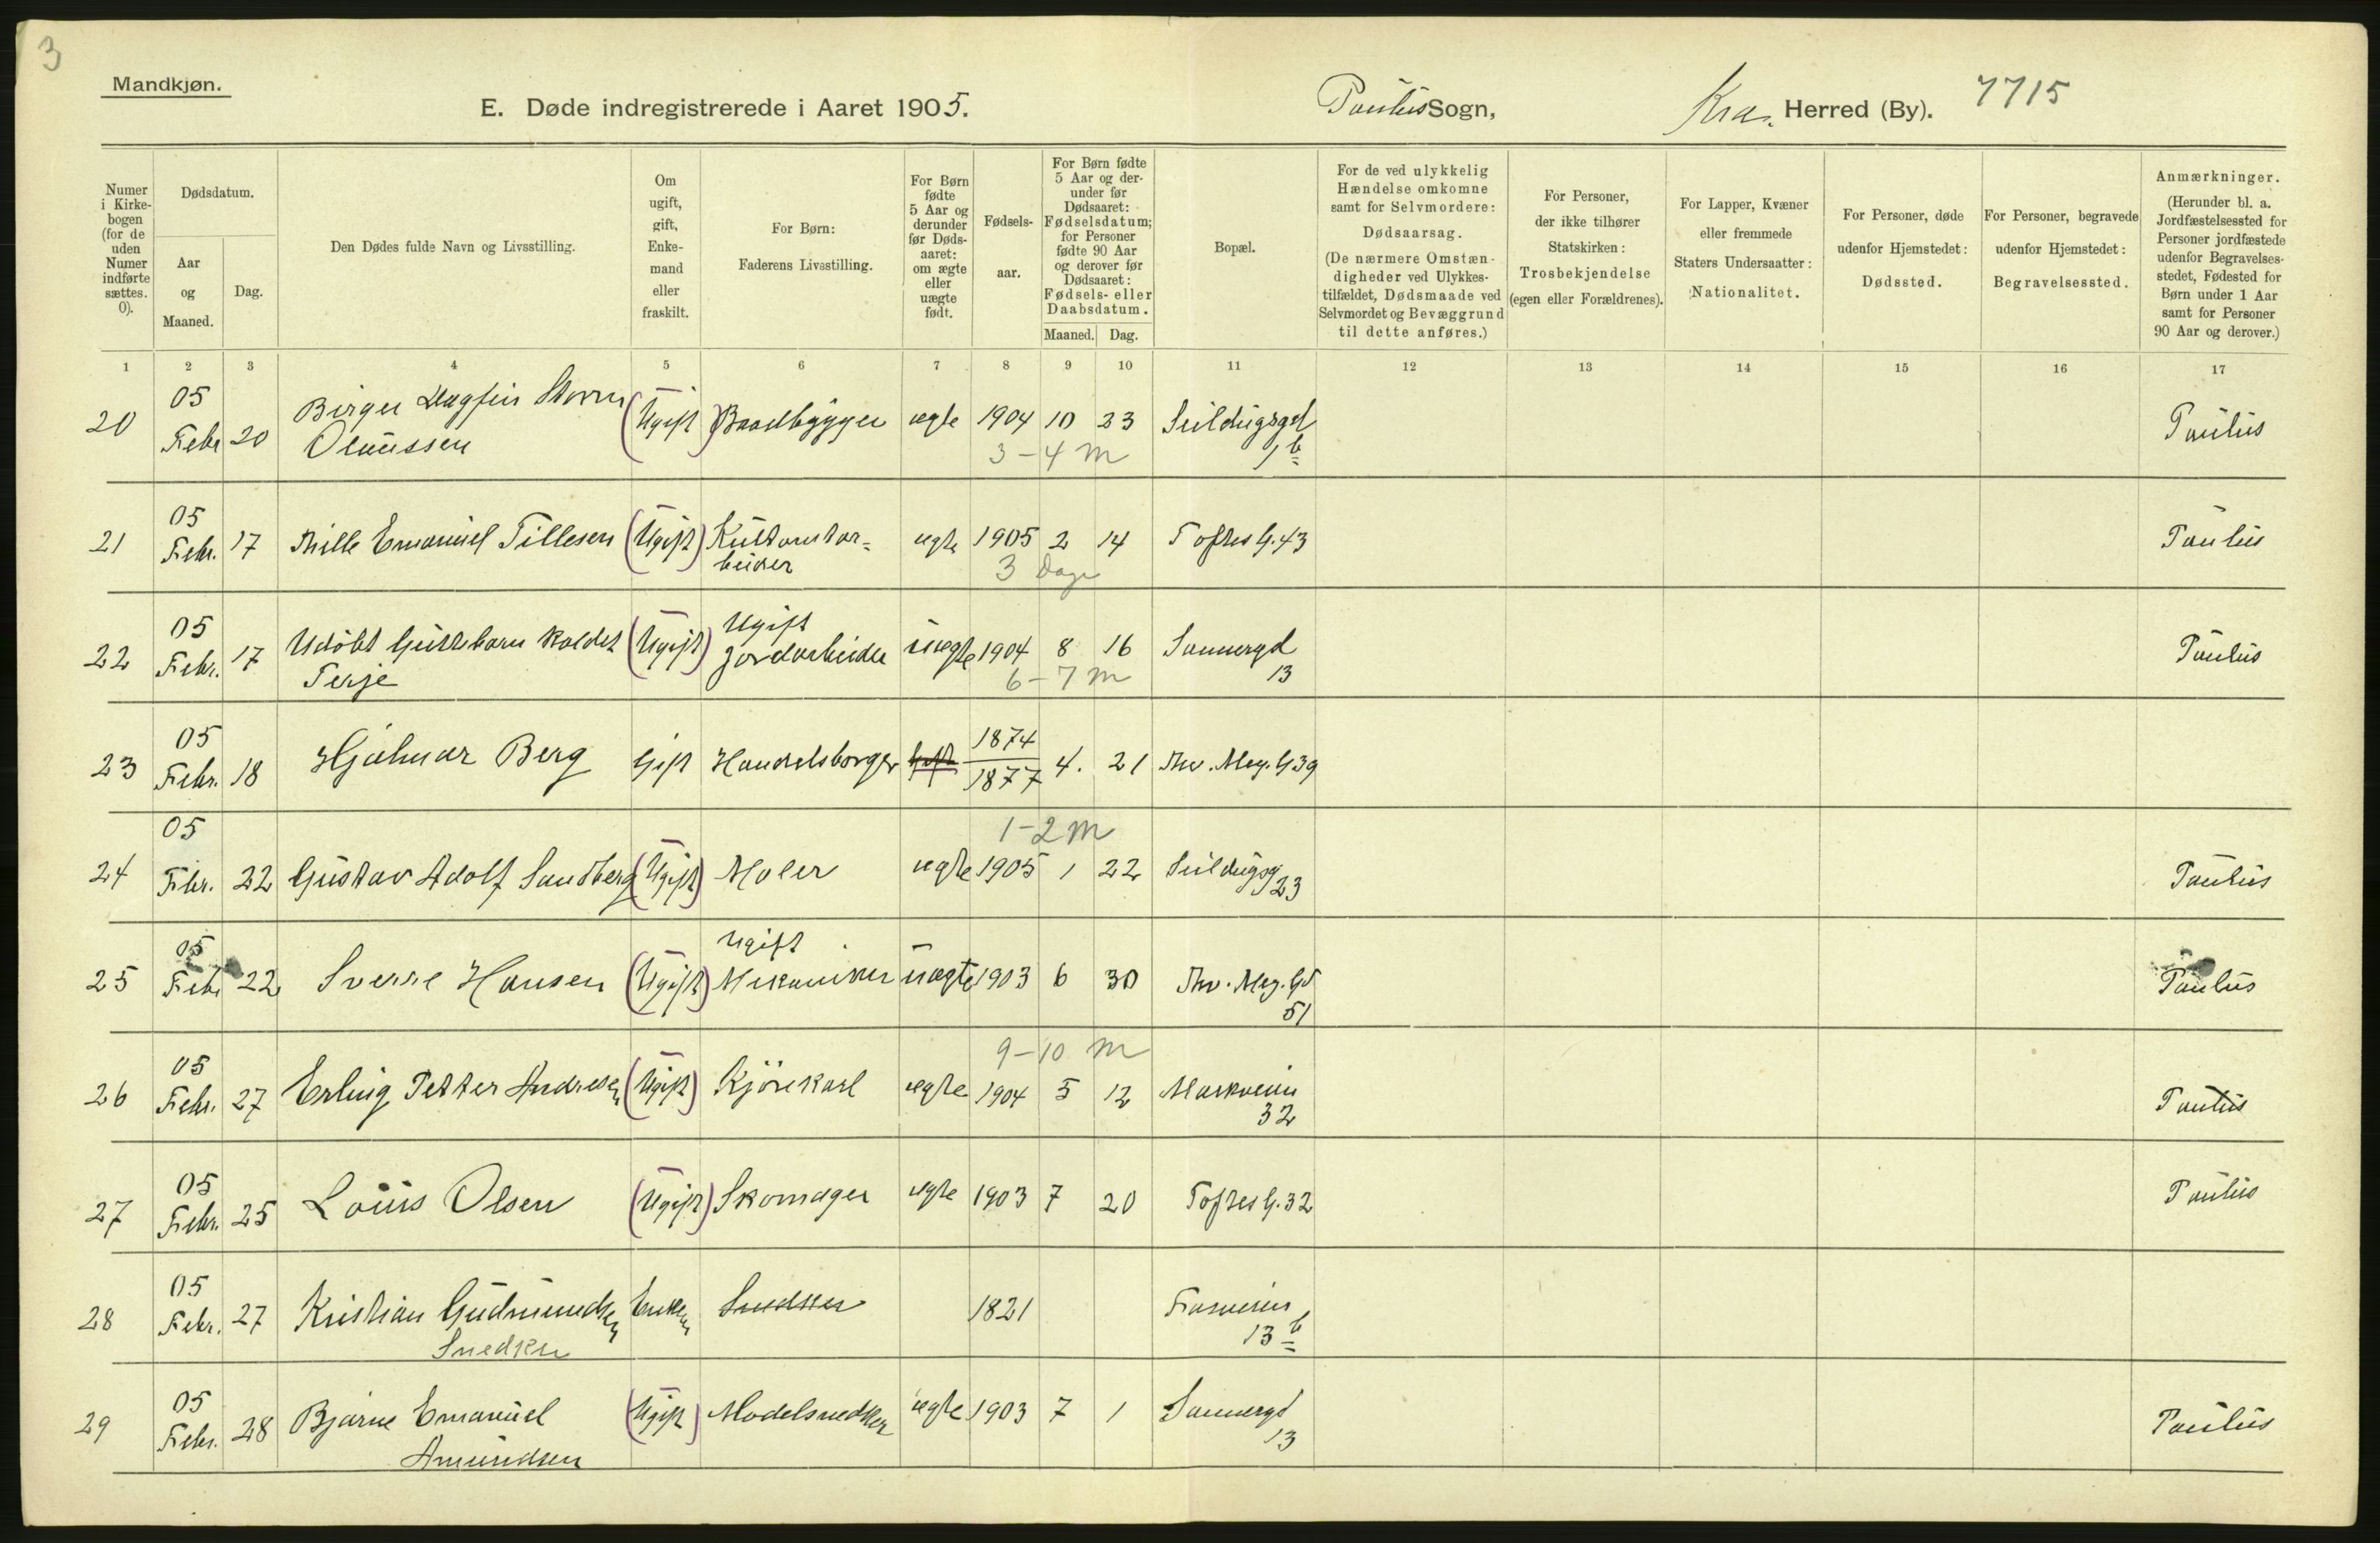 3
Mandkjøn.
E. Døde indregistrerede i Aaret 1905.
Paulus Sogn,
Kra. Herred (By).
7715
Numer i Kirkebogen (for de uden Numer indførte sættes. 0).
Dødsdatum.
Aar og Maaned.
Dag.
Den Dødes fulde Navn og Livsstilling.
Om ugift, gift, Enkemand eller fraskilt.
For Børn: Faderens Livsstilling.
For Børn fødte 5 Aar og derunder før Dødsaaret: om ægte eller uægte født.
Fødselsaar.
For Børn fødte 5 Aar og derunder før Dødsaaret: Fødselsdatum; for Personer fødte 90 Aar og derover før Dødsaaret: Fødsels- eller Daabsdatum.
Maaned. Dag.
Bopæl.
For de ved ulykkelig Hændelse omkomne samt for Selvmordere: Dødsaarsag. (De nærmere Omstændigheder ved Ulykkestilfældet, Dødsmaade ved Selvmordet og Bevæggrund til dette anføres.)
For Personer, der ikke tilhører Statskirken: Trosbekjendelse (egen eller Forældrenes).
For Lapper, Kvæner eller fremmede Staters Undersaatter: Nationalitet.
For Personer, døde udenfor Hjemstedet: Dødssted.
For Personer, begravede udenfor Hjemstedet: Begravelsessted.
Anmærkninger. (Herunder bl. a. Jordfæstelsessted for Personer jordfæstede udenfor Begravelsesstedet, Fødested for Børn under 1 Aar samt for Personer 90 Aar og derover.)
1 2 3 4 5 6 7 8 9 10 11 12 13 14 15 16 17
20 05 Febr 20 Birger Dagfin Storm Olaussen (Ugift) Baadbygger ægte 1904 10 23 Seildugsgd 1b Paulus
3-4 m
21 05 Febr. 17 Thille Emanuel Tillesen (Ugift) Kustarbeider ægte 1905 2 14 Toftes G. 43 Paulus
3 Dage
22 05 Febr. 17 Udøbt Guttebarn kaldet Terje (Ugift) Ugift Jordarbeider uægte 1904 8 16 Sannergd 13 Paulus
6-7 m
23 05 Febr. 18 Hjalmar Berg Gift Handelsborger 1874 1877 4. 21 Thv. Mey. G 39
1-2 m
24 05 Febr. 22 Gustav Adolf Sandberg (Ugift) Maler ægte 1905 1 22 Seildugsg 23 Paulus
25 05 Febr 22 Sverre Hansen (Ugift) Ugift Mekaniker uægte 1903 6 30 Thv. Mey. Gd 51 Paulus
9-10 m
26 05 Febr. 27 Erling Petter Andresen (Ugift) Kjørekarl ægte 1904 5 12 Markveien 32 Paulus
27 05 Febr. 25 Louis Olsen (Ugift) Skomager ægte 1903 7 20 Toftes G. 32 Paulus
28 05 Febr. 27 Kristian Gudmundsen Snedker Enkem Snedker 1821 Fossveien 13b
29 05 Febr. 28 Bjarne Emanuel Amundsen (Ugift) Modelsnedker ægte 1903 7 1 Sannergd 13 Paulus